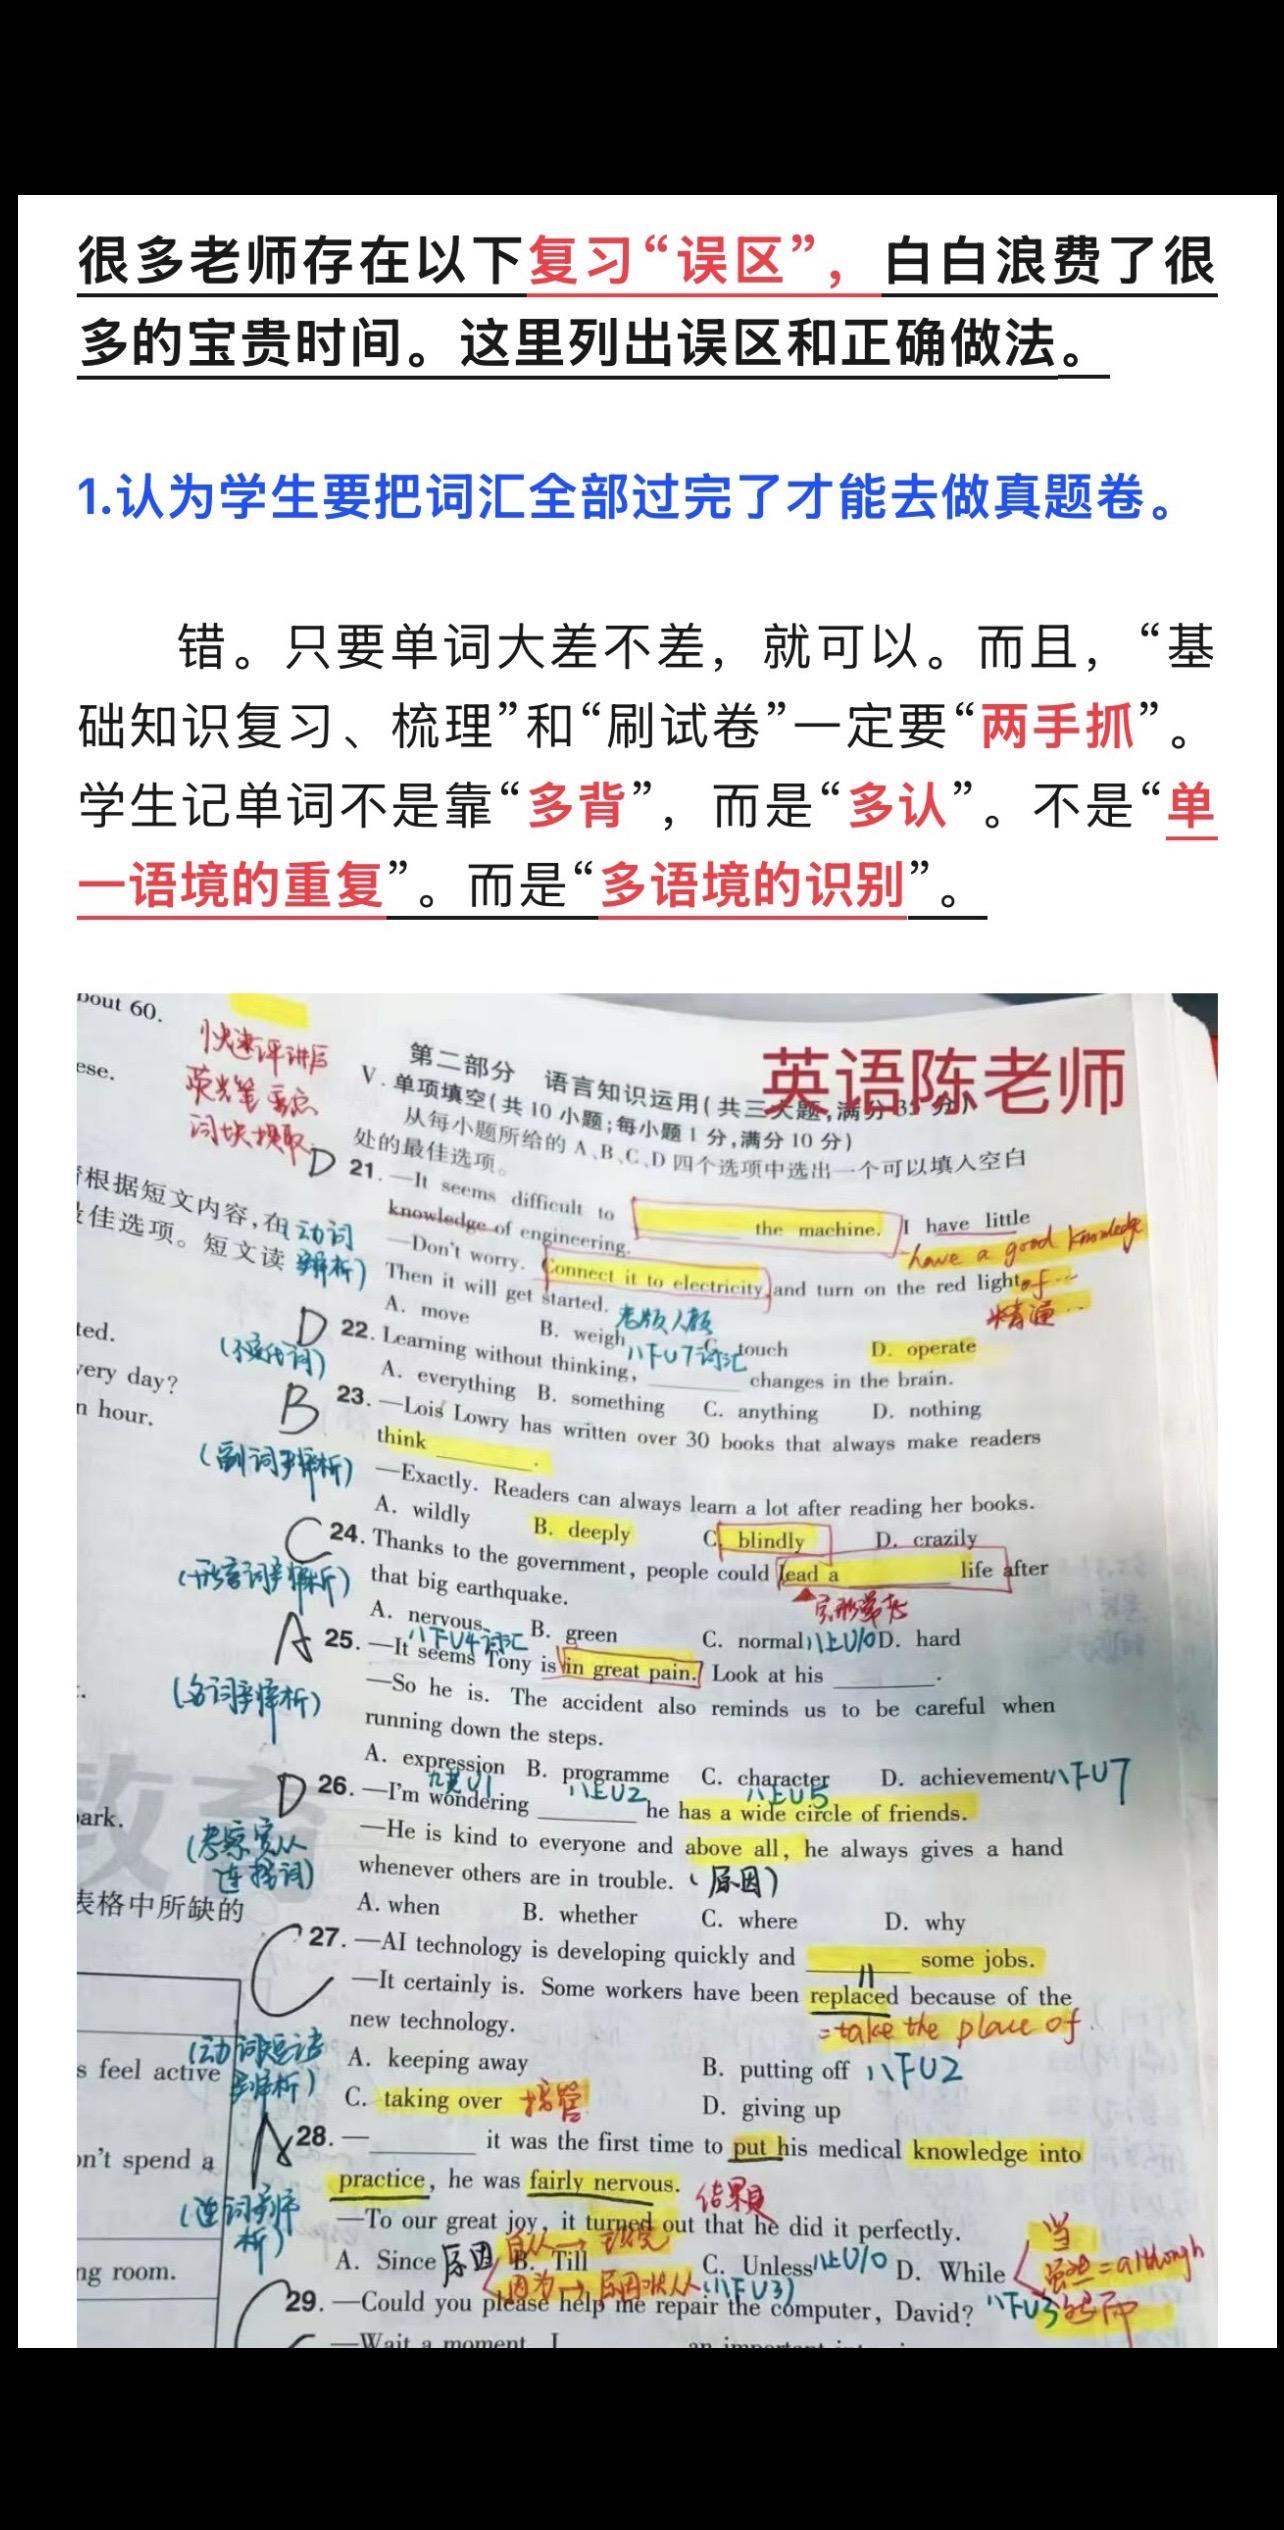 很多老师存在以下复习“误区”，白白浪费了很
多的宝贵时间。这里列出误区和正确做法。
1.认为学生要把词汇全部过完了才能去做真题卷。
错。只要单词大差不差，就可以。而且，“基
础知识复习、梳理”和“刷试卷”一定要“两手抓”。
学生记单词不是靠“多背”，而是“多认”。不是“单
一语境的重复”。而是“多语境的识别”。
bout 60.
快速评讲后
荧光笔重点
词块提取
ese.
英语陈老师
第二部分 语言知识运用(共三大题,满分35分)
V.单项填空(共10小题;每小题1分,满分10分)
从每小题所给的A、B、C、D四个选项中选出一个可以填入空白
处的最佳选项。
根据短文内容,在
佳选项。短文读
(动词
辨析)
D 21.—It seems difficult to ________ the machine. I have little
knowledge of engineering.
have a good knowledge
of…
精通…
—Don't worry. Connect it to electricity, and turn on the red light.
Then it will get started.
A. move B. weigh C. touch D. operate
八下U7词汇
ted.
very day?
n hour.
D 22. Learning without thinking, ________ changes in the brain.
(不定代词)
A. everything B. something C. anything D. nothing
B 23.—Lois Lowry has written over 30 books that always make readers
think ________.
(副词辨析)
—Exactly. Readers can always learn a lot after reading her books.
A. wildly B. deeply C. blindly D. crazily
C 24. Thanks to the government, people could lead a ________ life after
that big earthquake.
(形容词辨析)
A. nervous B. green C. normal 八上U10 D. hard
八下U4词汇
A 25.—It seems Tony is in great pain. Look at his ________.
(名词辨析)
—So he is. The accident also reminds us to be careful when
running down the steps.
A. expression B. programme C. character D. achievement 八下U7
八上U2 八上U5
D 26.—I'm wondering ________ he has a wide circle of friends.
(考察宾从
连接词)
—He is kind to everyone and above all, he always gives a hand
whenever others are in trouble. (原因)
A. when B. whether C. where D. why
park.
教育
表格中所缺的
C 27.—AI technology is developing quickly and ________ some jobs.
—It certainly is. Some workers have been replaced because of the
new technology.
=take the place of
(动词短语
辨析)
A. keeping away B. putting off 八下U2
C. taking over 接管 D. giving up
s feel active
n't spend a
A 28.—________ it was the first time to put his medical knowledge into
practice, he was fairly nervous. 结果是
(连词辨析)
—To our great joy, it turned out that he did it perfectly.
A. Since 原因 B. Till C. Unless 八上U10 D. While
自从→
因为→原因状从 (八下U3)
当
虽然=although
八下U3 然而
ng room.
29.—Could you please help me repair the computer, David?
—Wait a moment. I